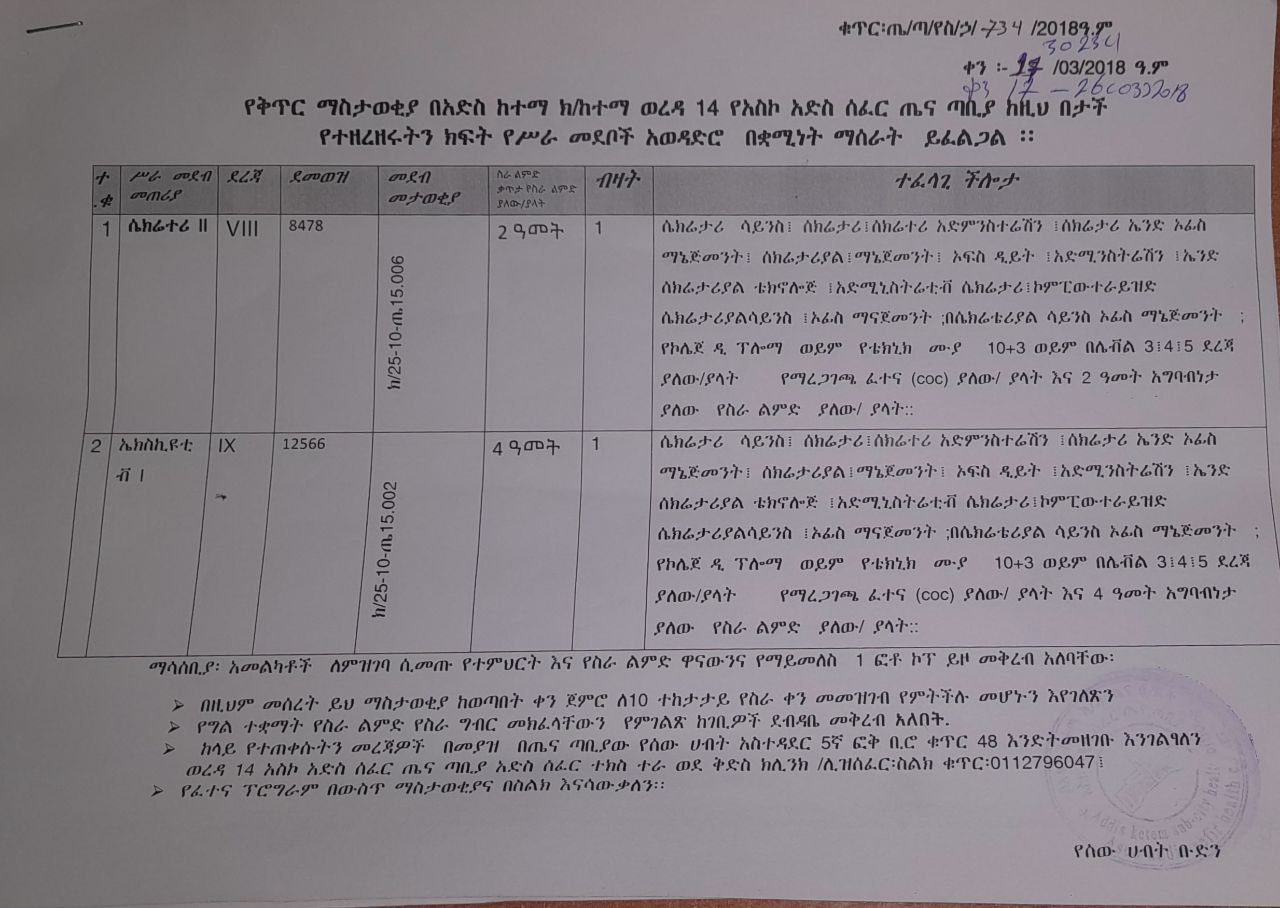 ቁጥር፡ጤ/ጣ/የስ/ኃ/-734 /2018ዓ.ም
30234
ቀን ፡- 17 /03/2018 ዓ.ም
የቅጥር ማስታወቂያ በአድስ ከተማ ክ/ከተማ ወረዳ 14 የአስኮ አድስ ሰፈር ጤና ጣቢያ ከዚህ በታች
የተዘረዘሩትን ክፍት የሥራ መደቦች አወዳድሮ በቋሚነት ማሰራት ይፈልጋል ፡፡
ተ.ቁ ሥራ መደብ መጠሪያ ደረጃ ደመወዝ መደብ መታወቂያ ስራ ልምድ ቃጥታ የስራ ልምድ ያለው/ያላት ብዛት ተፈላጊ ችሎታ
1 ሴክሬተሪ II VIII 8478 ክ/25-10-ጤ.15.006 2 ዓመት 1 ሴክሬታሪ ሳይንስ፤ ሰክሬታሪ፤ሰክሬተሪ አድምንስተሬሽን ፤ሰክሬታሪ ኤንድ ኦፊስ
ማኔጅመንት፤ ሰክሬታሪያል፤ማኔጀመንት፤ ኦፍስ ዲይት ፤አድሚንስትሬሽን ፤ኤንድ
ሰክሬታሪያል ቴክኖሎጅ ፤አድሚኒስትሬቲቭ ሴክሬታሪ፤ኮምፒውተራይዝድ
ሴክሬታሪያልሳይንስ ፤ኦፊስ ማናጀመንት ;በሴክሬቴሪያል ሳይንስ ኦፊስ ማኔጅመንት ;
የኮሌጀ ዲ ፕሎማ ወይም የቴክኒክ ሙያ 10+3 ወይም በሌቭል 3፤4፤5 ደረጃ
ያለው/ያላት የማረጋገጫ ፈተና (coc) ያለው/ ያላት እና 2 ዓመት አግባብነታ
ያለው የስራ ልምድ ያለው/ ያላት፡፡
2 ኤክስኪዩቲቭ I IX 12566 ክ/25-10-ጤ.15.002 4 ዓመት 1 ሴክሬታሪ ሳይንስ፤ ሰክሬታሪ፤ሰክሬተሪ አድምንስተሬሽን ፤ሰክሬታሪ ኤንድ ኦፊስ
ማኔጅመንት፤ ሰክሬታሪያል፤ማኔጀመንት፤ ኦፍስ ዲይት ፤አድሚንስትሬሽን ፤ኤንድ
ሰክሬታሪያል ቴክኖሎጅ ፤አድሚኒስትሬቲቭ ሴክሬታሪ፤ኮምፒውተራይዝድ
ሴክሬታሪያልሳይንስ ፤ኦፊስ ማናጀመንት ;በሴክሬቴሪያል ሳይንስ ኦፊስ ማኔጅመንት ;
የኮሌጀ ዲ ፕሎማ ወይም የቴክኒክ ሙያ 10+3 ወይም በሌቭል 3፤4፤5 ደረጃ
ያለው/ያላት የማረጋገጫ ፈተና (coc) ያለው/ ያላት እና 4 ዓመት አግባብነታ
ያለው የስራ ልምድ ያለው/ ያላት፡፡
ማሳሰቢያ፡ አመልካቶች ለምዝገባ ሲመጡ የተምህርት እና የስራ ልምድ ዋናውንና የማይመለስ 1 ፎቶ ኮፕ ይዞ መቅረብ አለባቸው፡
➢ በዚህም መሰረት ይህ ማስታወቂያ ከወጣበት ቀን ጀምሮ ለ10 ተከታታይ የስራ ቀን መመዝገብ የምትችሉ መሆኑን እየገለጽን
➢ የግል ተቋማት የስራ ልምድ የስራ ግብር መክፈላቸውን የምገልጽ ከገቢዎች ደብዳቤ መቅረብ አለበት.
➢ ከላይ የተጠቀሱትን መረጃዎች በመያዝ በጤና ጣቢያው የሰው ሀብት አስተዳደር 5ኛ ፎቅ ቢሮ ቁጥር 48 እንድትመዘገቡ እንገልፃለን
ወረዳ 14 አስኮ አድስ ሰፈር ጤና ጣቢያ አድስ ሰፈር ተክስ ተራ ወደ ቅድስ ክሊንክ /ሊዝሰፈር፡ስልክ ቁጥር፡0112796047፤
➢ የፈተና ፕሮግራም በውስጥ ማስታወቂያና በስልክ እናሳውቃለን፡፡
Addis ketem sub-city health
የስው ሀብት ቡድን